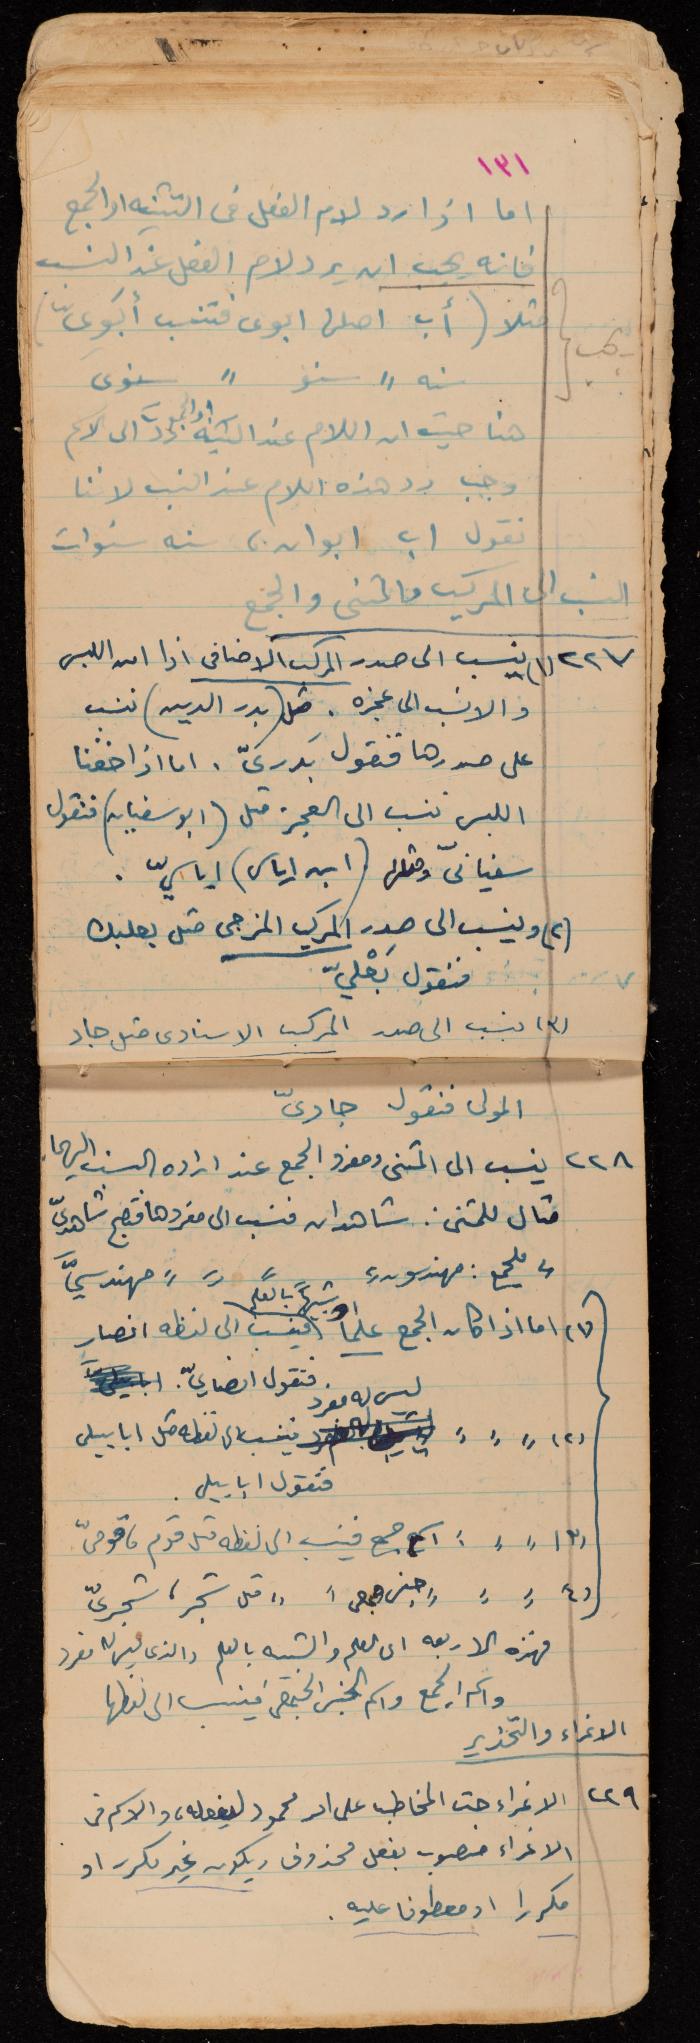 ١٣١
اما اذا رد لام الفعل فى التثنيه او الجمع
فانه يجب ان يرد لام الفعل عند النسب
مثلا ( أب اصلها ابوى فتنسب أبَوىّ )
يجب
سنه " سنو " سنوىّ
هنا حيث ان اللام عند التثنيه او الجمع ردت الى الاسم
وجب رد هذه اللام عند النسب لاننا
نقول اب ابوان ، سنه سنوات
النسب الى المركب والمثنى والجمع
٢٢٧ (١) ينسب الى صدر المركب الاضافى اذا امن اللبس
والا نسب الى عجزه . مثل (بدر الدين) ننسب
على صدرها فنقول بَدرىّ . اما اذا خفنا
اللبس ننسب الى العجز . مثل (ابو سفيان) فنقول
سفيانىّ ومثلها (ابن اياس) اياسىّ .
(٢) وينسب الى صدر المركب المزجى مثل بعلبك
فنقول بَعْلىّ
(٣) ينسب الى صدر المركب الاسنادى مثل جاد
المولى فنقول جادىّ
٢٢٨ ينسب الى المثنى ومفرد الجمع عند اراده النسب اليهما
مثال للمثنى : شاهدان فنسب الى مفردها فتصبح شاهدىّ
" للجمع : مهندسون " " " مهندسىّ
(١) اما اذا كان الجمع علماً او شبيهاً بالعلم فينسب الى لفظه انصار
فنقول انصارىّ .
(٢) " " " ليس له مفرد فينسب الى لفظه مثل ابابيلى
فنقول ابابيلى .
(٣) " " " اسم جمع فينسب الى لفظه مثل قوم ، قومىّ
(٤) " " " " جنس جمعى " " مثل شجر ، شجرىّ
فهذه الاربعه اى العلم والشبيه بالعلم والذى ليس له مفرد
واسم الجمع واسم الجنس الجمعى فينسب الى لفظها
الاغراء والتحذير
٢٢٩ الاغراء حث المخاطب على امر محمود ليفعله، والاسم فى
الاغراء منصوب بفعل محذوف ويكون غير مكرر او
مكررا او معطوفا عليه .